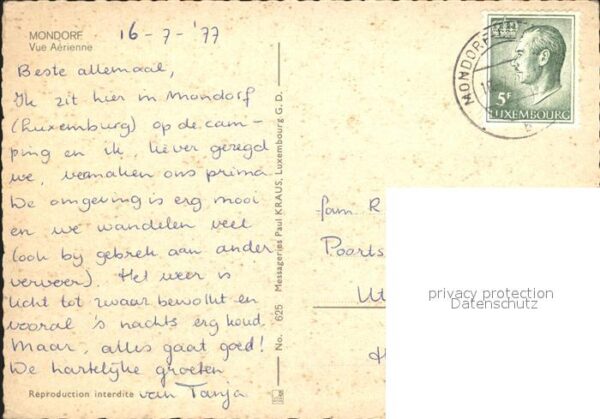 MONDORF
Vue Aérienne
16-7-'77
Beste allemaal,
Ik zit hier in Mondorf
(Luxemburg) op de cam-
ping en ik, liever gezegd
we, vermaken ons prima
De omgeving is erg mooi
en we wandelen veel
(ook bij gebrek aan ander
vervoer). Het weer is
licht tot zwaar bewolkt en
vooral 's nachts erg koud.
Maar, alles gaat goed!
De hartelijke groeten
van Tanja
Reproduction interdite
No. 625 Messageries Paul KRAUS, Luxembourg G.D.
MONDORF
5F
LUXEMBOURG
fam. R
Poorts
Ut
privacy protection
Datenschutz